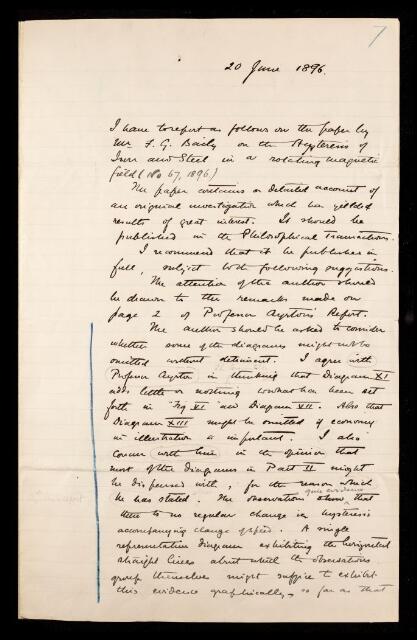 7
20 June 1896.
I have to report as follows on the paper by
Mr. F. G. Baily on the Hysteresis of
Iron and Steel in a rotating magnetic
field (No 67, 1896)
The paper contains a detailed account of
an original investigation which has yielded
results of great interest. It should be
published in the Philosophical Transactions.
I recommend that it be published in
full, subject to the following suggestions.
The attention of the author should
be drawn to the remarks made on
page 2 of Professor Ayrton's Report.
The author should be asked to consider
whether some of the diagrams might not be
omitted without detriment. I agree with
Professor Ayrton in thinking that Diagram XI
adds little or nothing to what has been set
forth in Fig VI and Diagram VII. Also that
Diagram XIII might be omitted if economy
in illustration is important. I also
concur with him in the opinion that
most of the diagrams in Part II might
be dispensed with, for the reason which
he has stated. The observations give evidence that
there is no regular change in hysteresis
accompanying change of speed. A single
representative diagram exhibiting the horizontal
straight lines about which the observations
group themselves might suffice to exhibit
this evidence graphically, so far as that